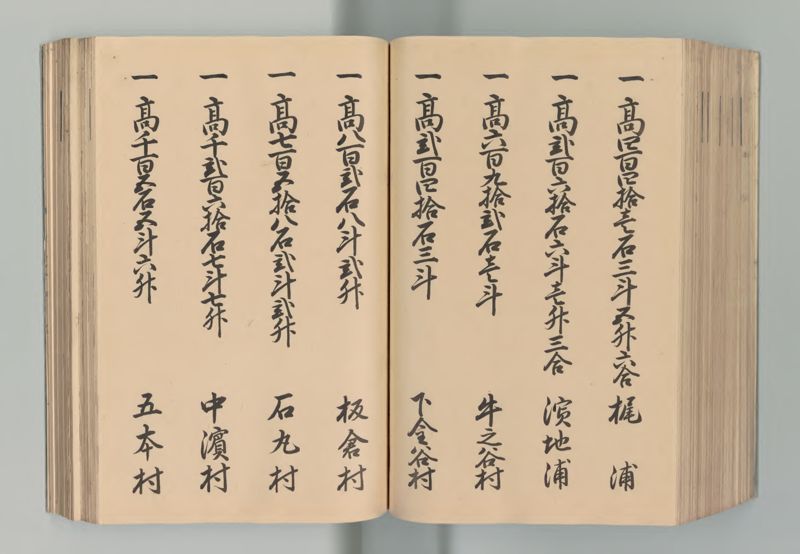 一高四百四拾壱石三斗五升六合 梶浦
一高弐百六拾石六斗壱升三合 濱地浦
一高六百九拾弐石壱斗 牛之谷村
一高弐百四拾石三斗 下金谷村
一高八百弐石八斗弐升 板倉村
一高七百五拾八石弐斗弐升 石丸村
一高千弐百六拾石七斗七升 中濱村
一高千百五石五斗六升 五本村